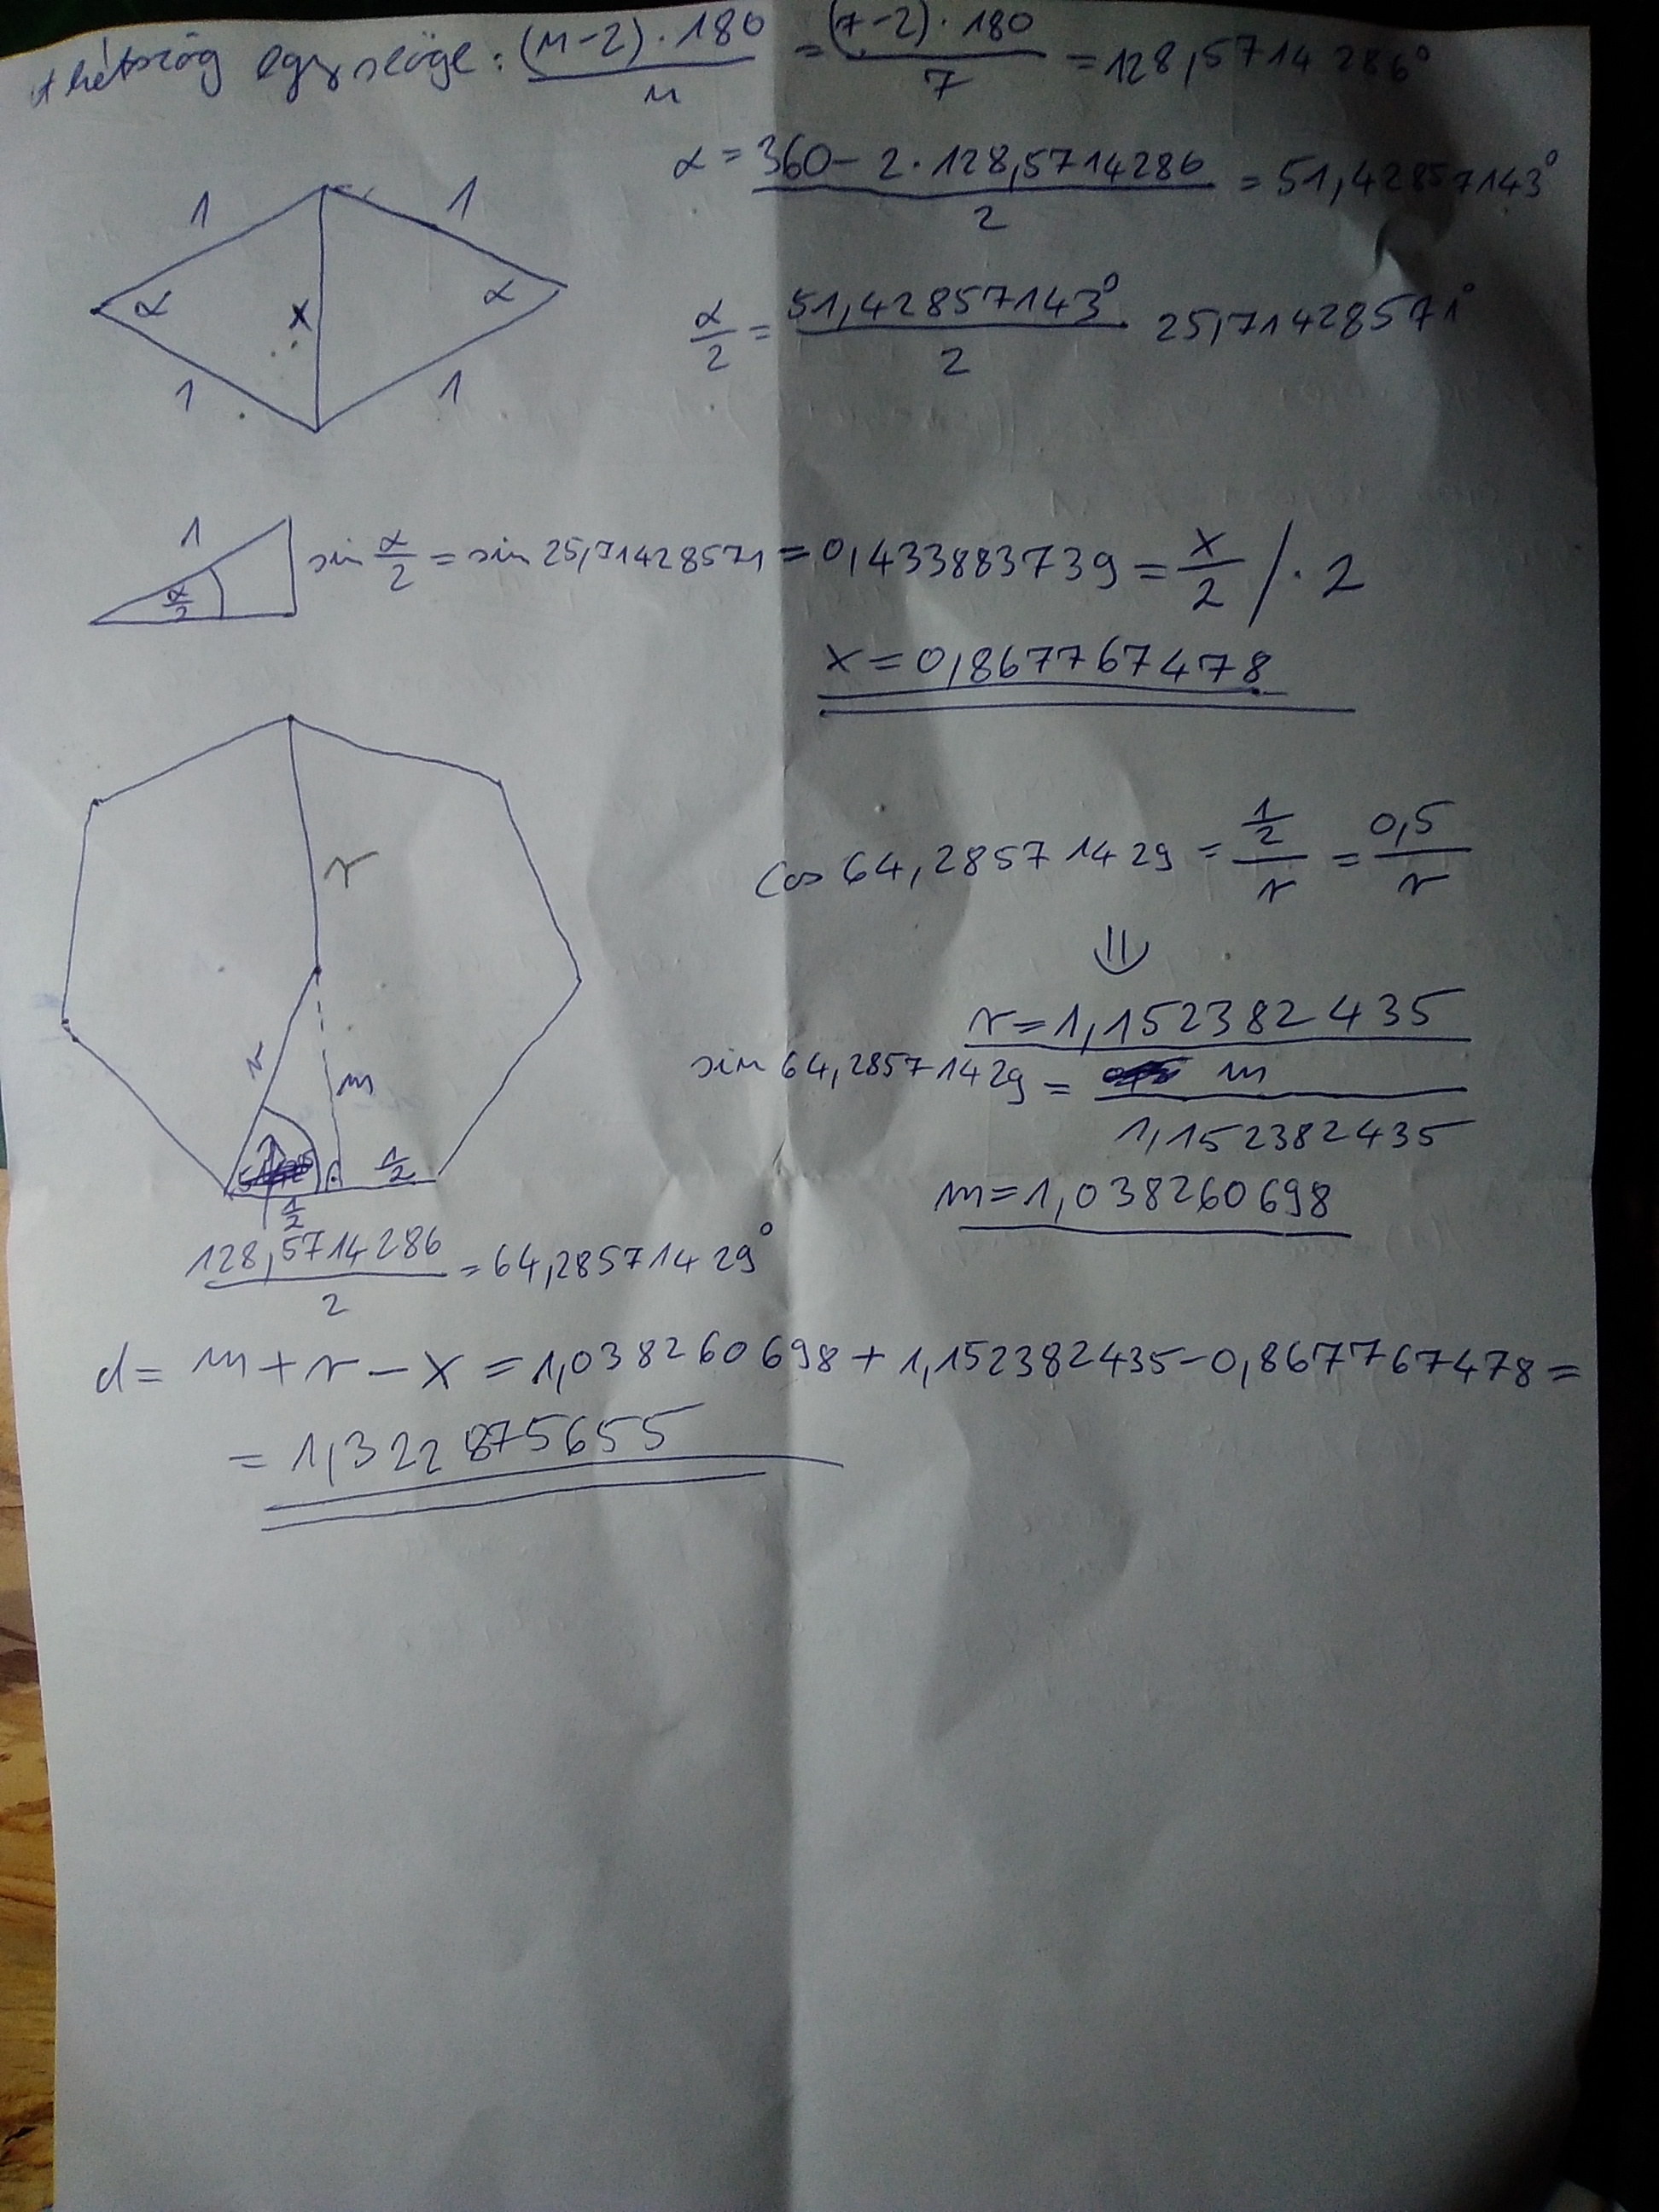 A hétszög egy szöge: (n-2)·180/n = (7-2)·180/7 = 128,5714286°
α = 360-2·128,5714286/2 = 51,42857143°
1 1
α x α
1 1
α/2 = 51,42857143°/2 25,71428571°
1
α/2
sin α/2 = sin 25,71428571 = 0,433883739 = x/2 /·2
x = 0,867767478
r
cos 64,28571429 = 1/2/r = 0,5/r
⇓
r = 1,152382435
r m
sin 64,28571429 = m/1,152382435
m = 1,038260698
1/2
1/2
128,5714286/2 = 64,28571429°
d = m + r - x = 1,038260698 + 1,152382435 - 0,867767478 =
= 1,322875655